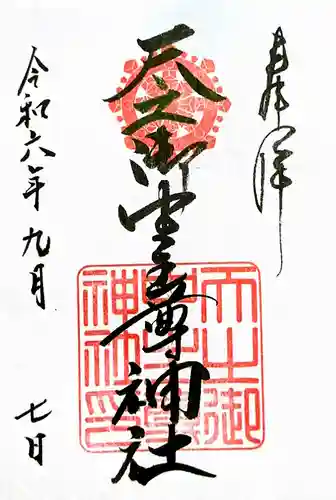 奉拝
天之御中主尊神社
天之御
中主尊
神社印
令和六年九月
七日